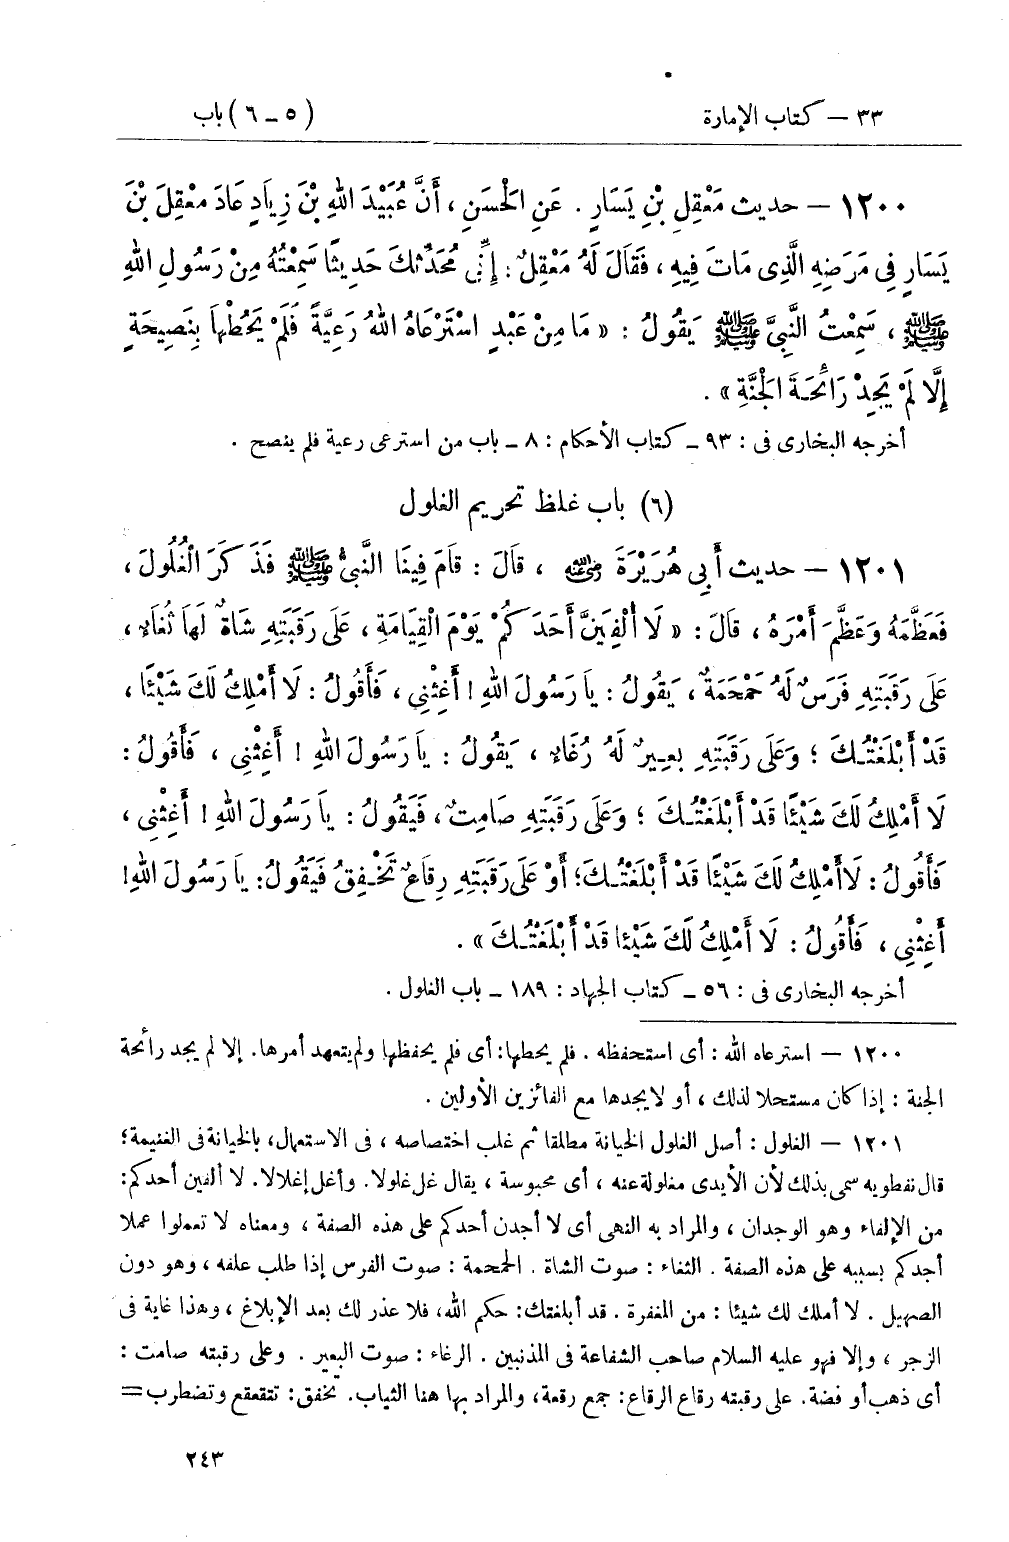 ٣٣ – كتاب الإمارة (٥ – ٦) باب
١٢٠٠ – حديث مَعْقِلِ بْنِ يَسَارٍ . عَنِ الْحَسَنِ ، أَنَّ عُبَيْدَ اللهِ بْنَ زِيَادٍ عَادَ مَعْقِلَ بْنَ
يَسَارٍ فِي مَرَضِهِ الَّذِى مَاتَ فِيهِ ، فَقَالَ لَهُ مَعْقِلٌ : إِنِّي مُحَدِّثُكَ حَدِيثًا سَمِعْتُهُ مِنْ رَسُولِ اللهِ
ﷺ ، سَمِعْتُ النَّبِيَّ ﷺ يَقُولُ : « مَا مِنْ عَبْدٍ اسْتَرْعَاهُ اللهُ رَعِيَّةً فَلَمْ يَحُطْهَا بِنَصِيحَةٍ
إِلَّا لَمْ يَجِدْ رَائِحَةَ الْجَنَّةِ » .
أخرجه البخارى فى : ٩٣ – كتاب الأحكام : ٨ – باب من استرعى رعية فلم ينصح .
(٦) باب غلظ تحريم الغلول
١٢٠١ – حديث أَبِي هُرَيْرَةَ رضي الله عنه ، قَالَ : قَامَ فِينَا النَّبِيُّ ﷺ فَذَكَرَ الْغُلُولَ ،
فَعَظَّمَهُ وَعَظَّمَ أَمْرَهُ ، قَالَ : « لَا أُلْفِيَنَّ أَحَدَكُمْ يَوْمَ الْقِيَامَةِ ، عَلَى رَقَبَتِهِ شَاةٌ لَهَا ثُغَاءٌ ،
عَلَى رَقَبَتِهِ فَرَسٌ لَهُ حَمْحَمَةٌ ، يَقُولُ : يَا رَسُولَ اللهِ ! أَغِثْنِي ، فَأَقُولُ : لَا أَمْلِكُ لَكَ شَيْئًا ،
قَدْ أَبْلَغْتُكَ ؛ وَعَلَى رَقَبَتِهِ بَعِيرٌ لَهُ رُغَاءٌ ، يَقُولُ : يَا رَسُولَ اللهِ ! أَغِثْنِي ، فَأَقُولُ :
لَا أَمْلِكُ لَكَ شَيْئًا قَدْ أَبْلَغْتُكَ ؛ وَعَلَى رَقَبَتِهِ صَامِتٌ ، فَيَقُولُ : يَا رَسُولَ اللهِ ! أَغِثْنِي ،
فَأَقُولُ : لَا أَمْلِكُ لَكَ شَيْئًا قَدْ أَبْلَغْتُكَ ؛ أَوْ عَلَى رَقَبَتِهِ رِقَاعٌ تَخْفِقُ فَيَقُولُ : يَا رَسُولَ اللهِ !
أَغِثْنِي ، فَأَقُولُ : لَا أَمْلِكُ لَكَ شَيْئًا قَدْ أَبْلَغْتُكَ » .
أخرجه البخارى فى : ٥٦ – كتاب الجهاد : ١٨٩ – باب الغلول .
١٢٠٠ – استرعاه الله : أى استحفظه . فلم يحطها : أى فلم يحفظها ولم يتعهد أمرها. إلا لم يجد رائحة
الجنة : إذا كان مستحلا لذلك ، أو لا يجدها مع الفائزين الأولين .
١٢٠١ – الغلول : أصل الغلول الخيانة مطلقا ثم غلب اختصاصه ، فى الاستعمال، بالخيانة فى الغنيمة؛
قال نفطويه سمى بذلك لأن الأيدى مغلولة عنه ، أى محبوسة ، يقال غل غلولا. وأغل إغلالا. لا ألفين أحدكم:
من الإلفاء وهو الوجدان ، والمراد به النهى أى لا أجدن أحدكم على هذه الصفة ، ومعناه لا تعملوا عملا
أجدكم بسببه على هذه الصفة . الثغاء : صوت الشاة . الحمحمة : صوت الفرس إذا طلب علفه ، وهو دون
الصهيل . لا أملك لك شيئا : من المغفرة . قد أبلغتك: حكم الله، فلا عذر لك بعد الإبلاغ ، وهذا غاية فى
الزجر ، وإلا فهو عليه السلام صاحب الشفاعة فى المذنبين . الرغاء : صوت البعير . وعلى رقبته صامت :
أى ذهب أو فضة. على رقبته رقاع الرقاع: جمع رقعة، والمراد بها هنا الثياب. تخفق: تتقعقع وتضطرب =
٢٤٣